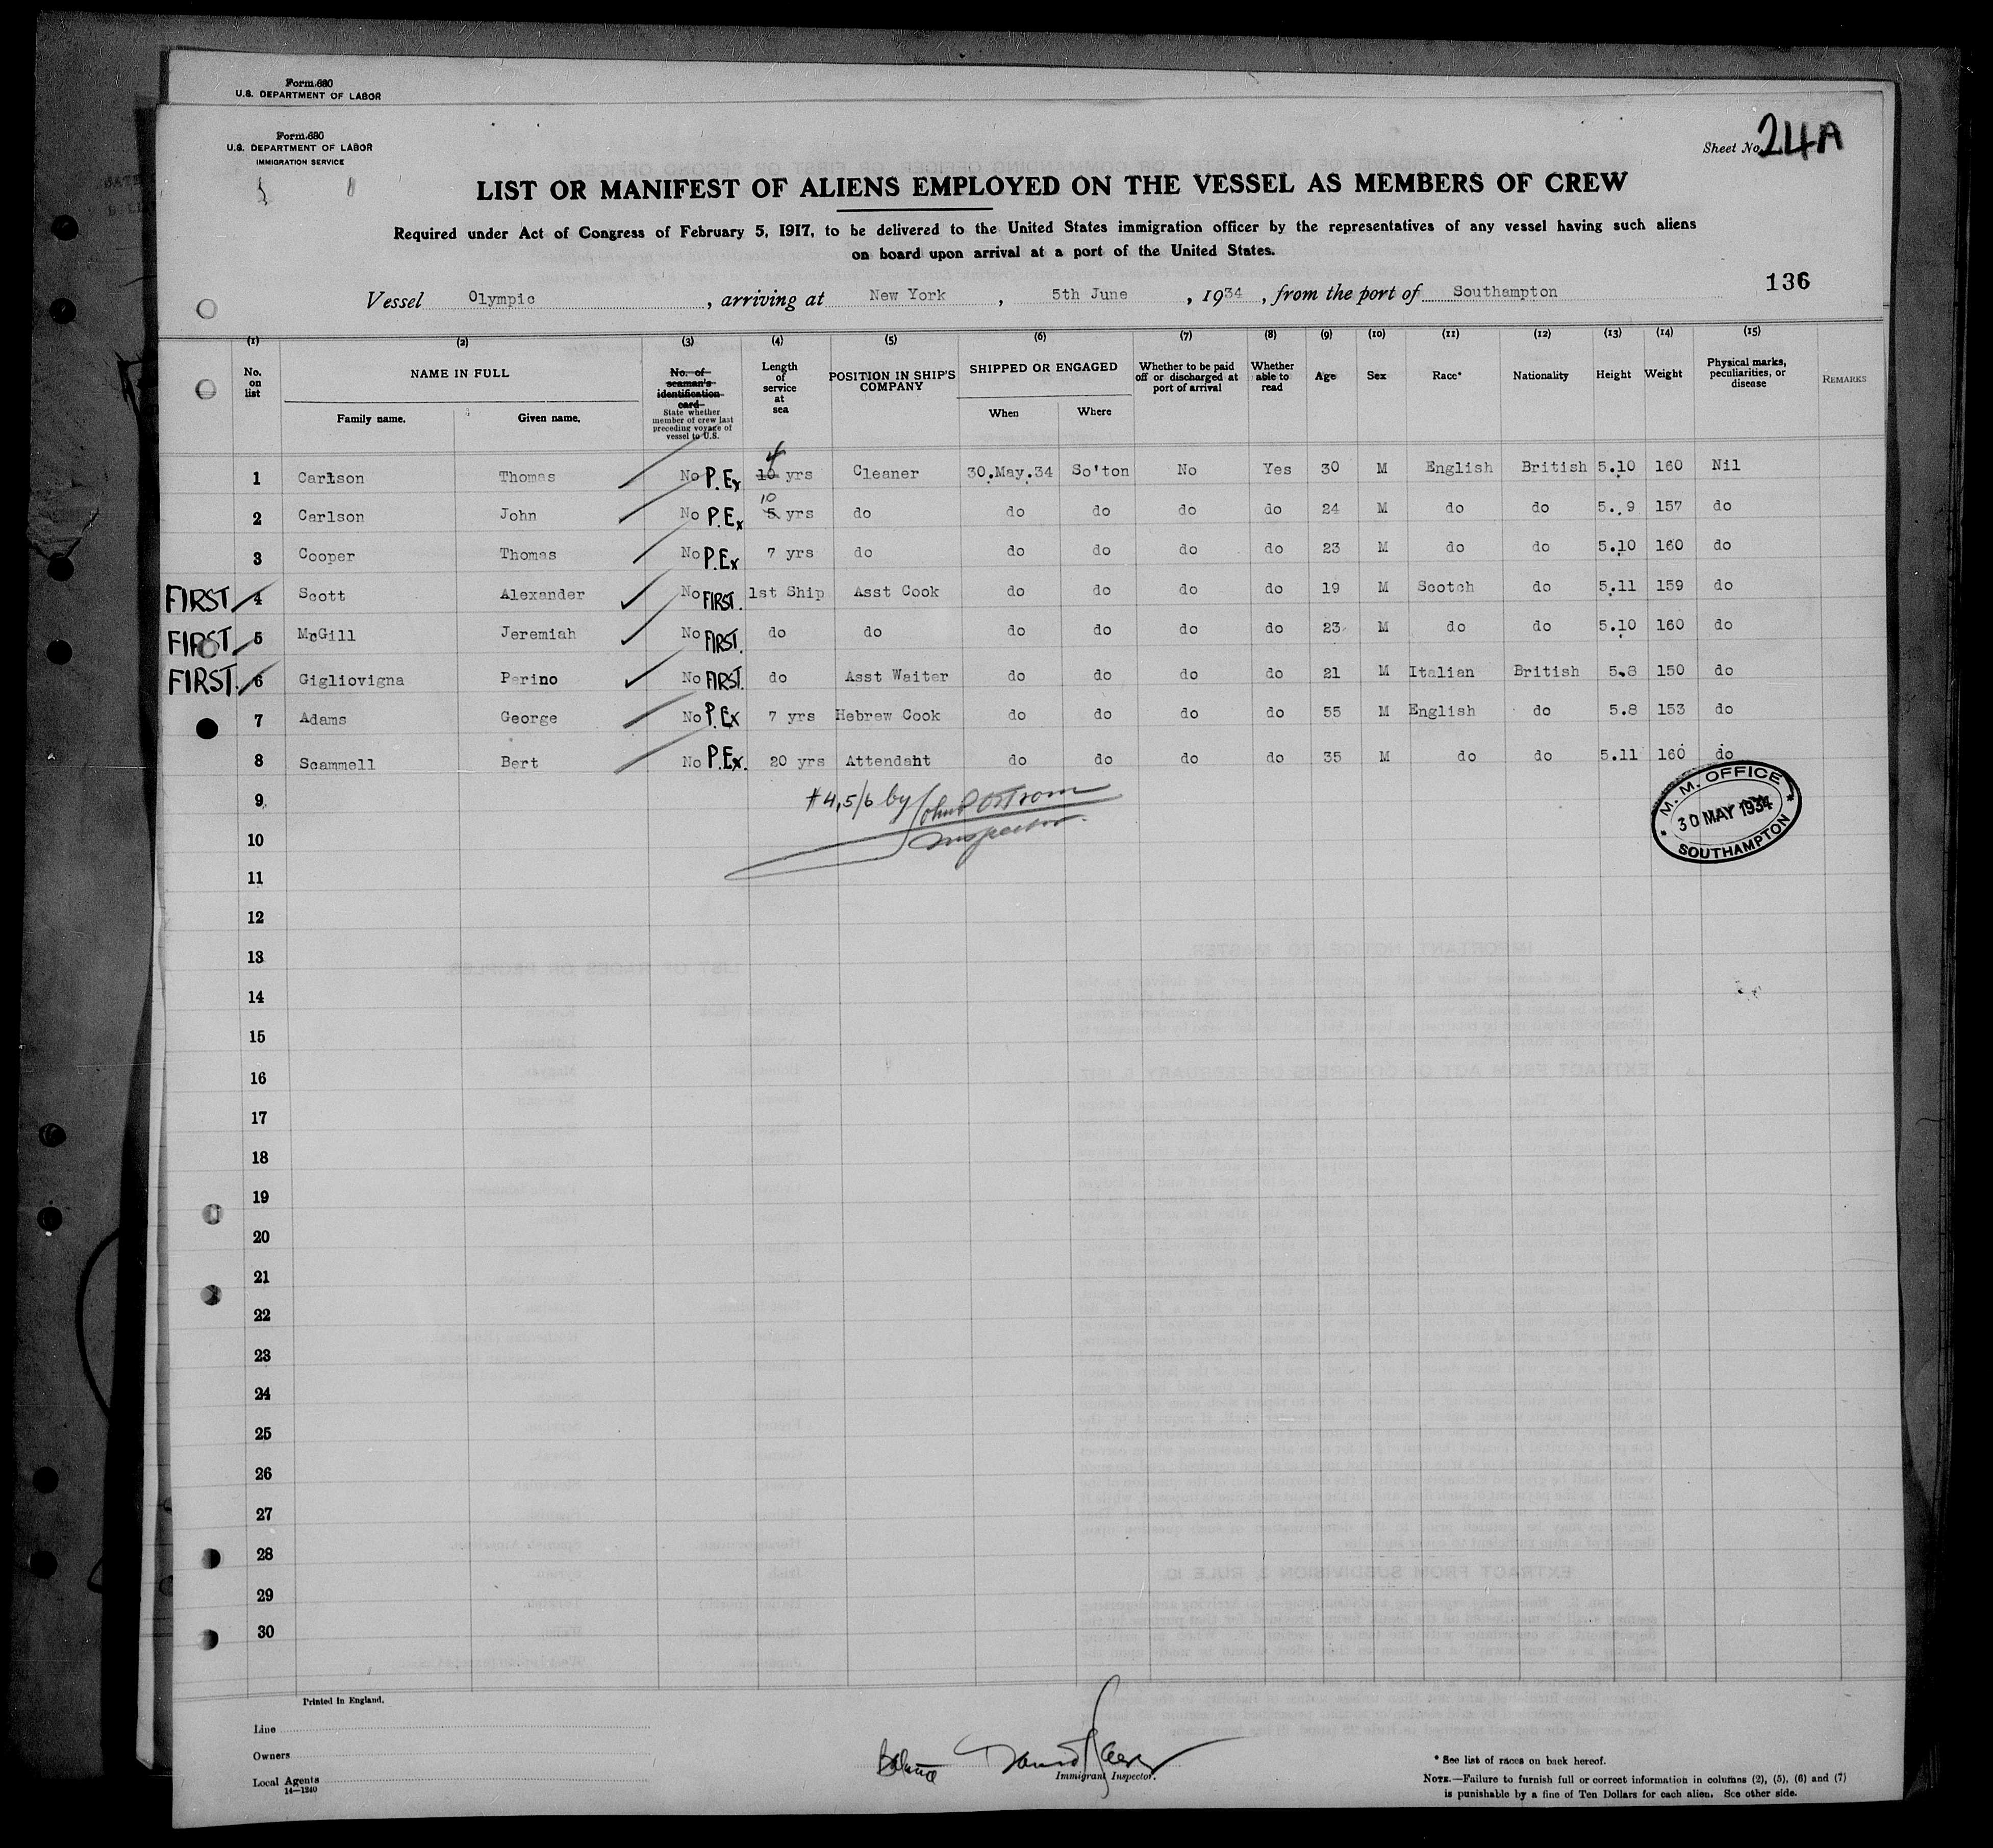 Form 680
U.S. DEPARTMENT OF LABOR
Form 680
U.S. DEPARTMENT OF LABOR
IMMIGRATION SERVICE
Sheet No. 24A
LIST OR MANIFEST OF ALIENS EMPLOYED ON THE VESSEL AS MEMBERS OF CREW
Required under Act of Congress of February 5, 1917, to be delivered to the United States immigration officer by the representatives of any vessel having such aliens
on board upon arrival at a port of the United States.
136
Vessel Olympic, arriving at New York, 5th June, 1934, from the port of Southampton
(1) (2) (3) (4) (5) (6) (7) (8) (9) (10) (11) (12) (13) (14) (15)
No. on list
NAME IN FULL
Family name. Given name.
No. of seaman's identification card
State whether member of crew last preceding voyage of vessel to U.S.
Length of service at sea
POSITION IN SHIP'S COMPANY
SHIPPED OR ENGAGED
When Where
Whether to be paid off or discharged at port of arrival
Whether able to read
Age
Sex
Race*
Nationality
Height
Weight
Physical marks, peculiarities, or disease
REMARKS
1 Carlson Thomas No P.Ex 10 4 yrs Cleaner 30.May.34 So'ton No Yes 30 M English British 5.10 160 Nil
2 Carlson John No P.Ex 5 10 yrs do do do do do 24 M do do 5.9 157 do
3 Cooper Thomas No P.Ex 7 yrs do do do do do 23 M do do 5.10 160 do
FIRST 4 Scott Alexander No FIRST. 1st Ship Asst Cook do do do do 19 M Scotch do 5.11 159 do
FIRST. 5 McGill Jeremiah No FIRST. do do do do do do 23 M do do 5.10 160 do
FIRST. 6 Gigliovigna Perino No FIRST. do Asst Waiter do do do do 21 M Italian British 5.8 150 do
7 Adams George No P.Ex 7 yrs Hebrew Cook do do do do 55 M English do 5.8 153 do
8 Scammell Bert No P.Ex. 20 yrs Attendant do do do do 35 M do do 5.11 160 do
#4,5/6 by John P Ostrom
Inspector.
M. M. OFFICE
30 MAY 1934
SOUTHAMPTON
9
10
11
12
13
14
15
16
17
18
19
20
21
22
23
24
25
26
27
28
29
30
Printed in England.
Line
Owners
Local Agents
14—1240
Immigrant Inspector.
* See list of races on back hereof.
NOTE.—Failure to furnish full or correct information in columns (2), (5), (6) and (7)
is punishable by a fine of Ten Dollars for each alien. See other side.